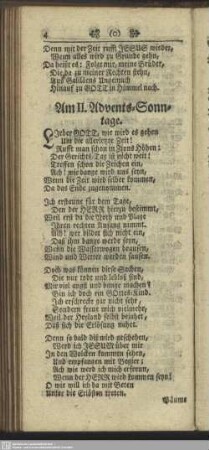 4 (0)
Denn mit der Zeit rufft JESUS wieder,
Wenn alles wird zu Grunde gehn,
Da heist es: Folget nur, meine Brüder,
Die da zu meiner Rechten stehn,
Aus Galiläens Angesicht
Hinauf zu GOTT in Himmel nach.
Am II. Advents-Sonn-
tage.
LIeber GOTT, wie wird es gehen
Um die allerletzte Zeit!
Rufft man schon in Zions Höhen:
Der Gerichts-Tag ist nicht weit!
Treffen schon die Zeichen ein,
Ach! wie bange wird uns seyn,
Wenn die Zeit wird selber kommen,
Da das Ende zugenommen.
Ich erstaune für dem Tage,
Den der HERR hierzu bestimmt,
Weil erst da die Noth und Plage
Ihren rechten Anfang nimmt.
Ach! wer sichet sich nicht ein,
Daß ihm bange werde seyn,
Wenn die Wasserwogen brausen,
Wind und Wetter werden sausen.
Doch was können diese Sachen,
Die nur todt und leblos sind,
Mir viel angst und bange machen?
Bin ich doch ein GOttes-Kind.
Ich erschrecke gar nicht sehr,
Sondern freue mich vielmehr,
Weil der Heyland selbst bejahet,
Daß sich die Erlösung nahet.
Denn so bald diß wird geschehen,
Werd ich JESUM über mir
In den Wolcken kommen sehen,
Und empfangen mit Begier;
Ach wie werd ich mich erfreun,
Wenn der HERR wird kommen seyn!
O wie will ich da mit Beten
Unter die Erlösten treten.
Bäume